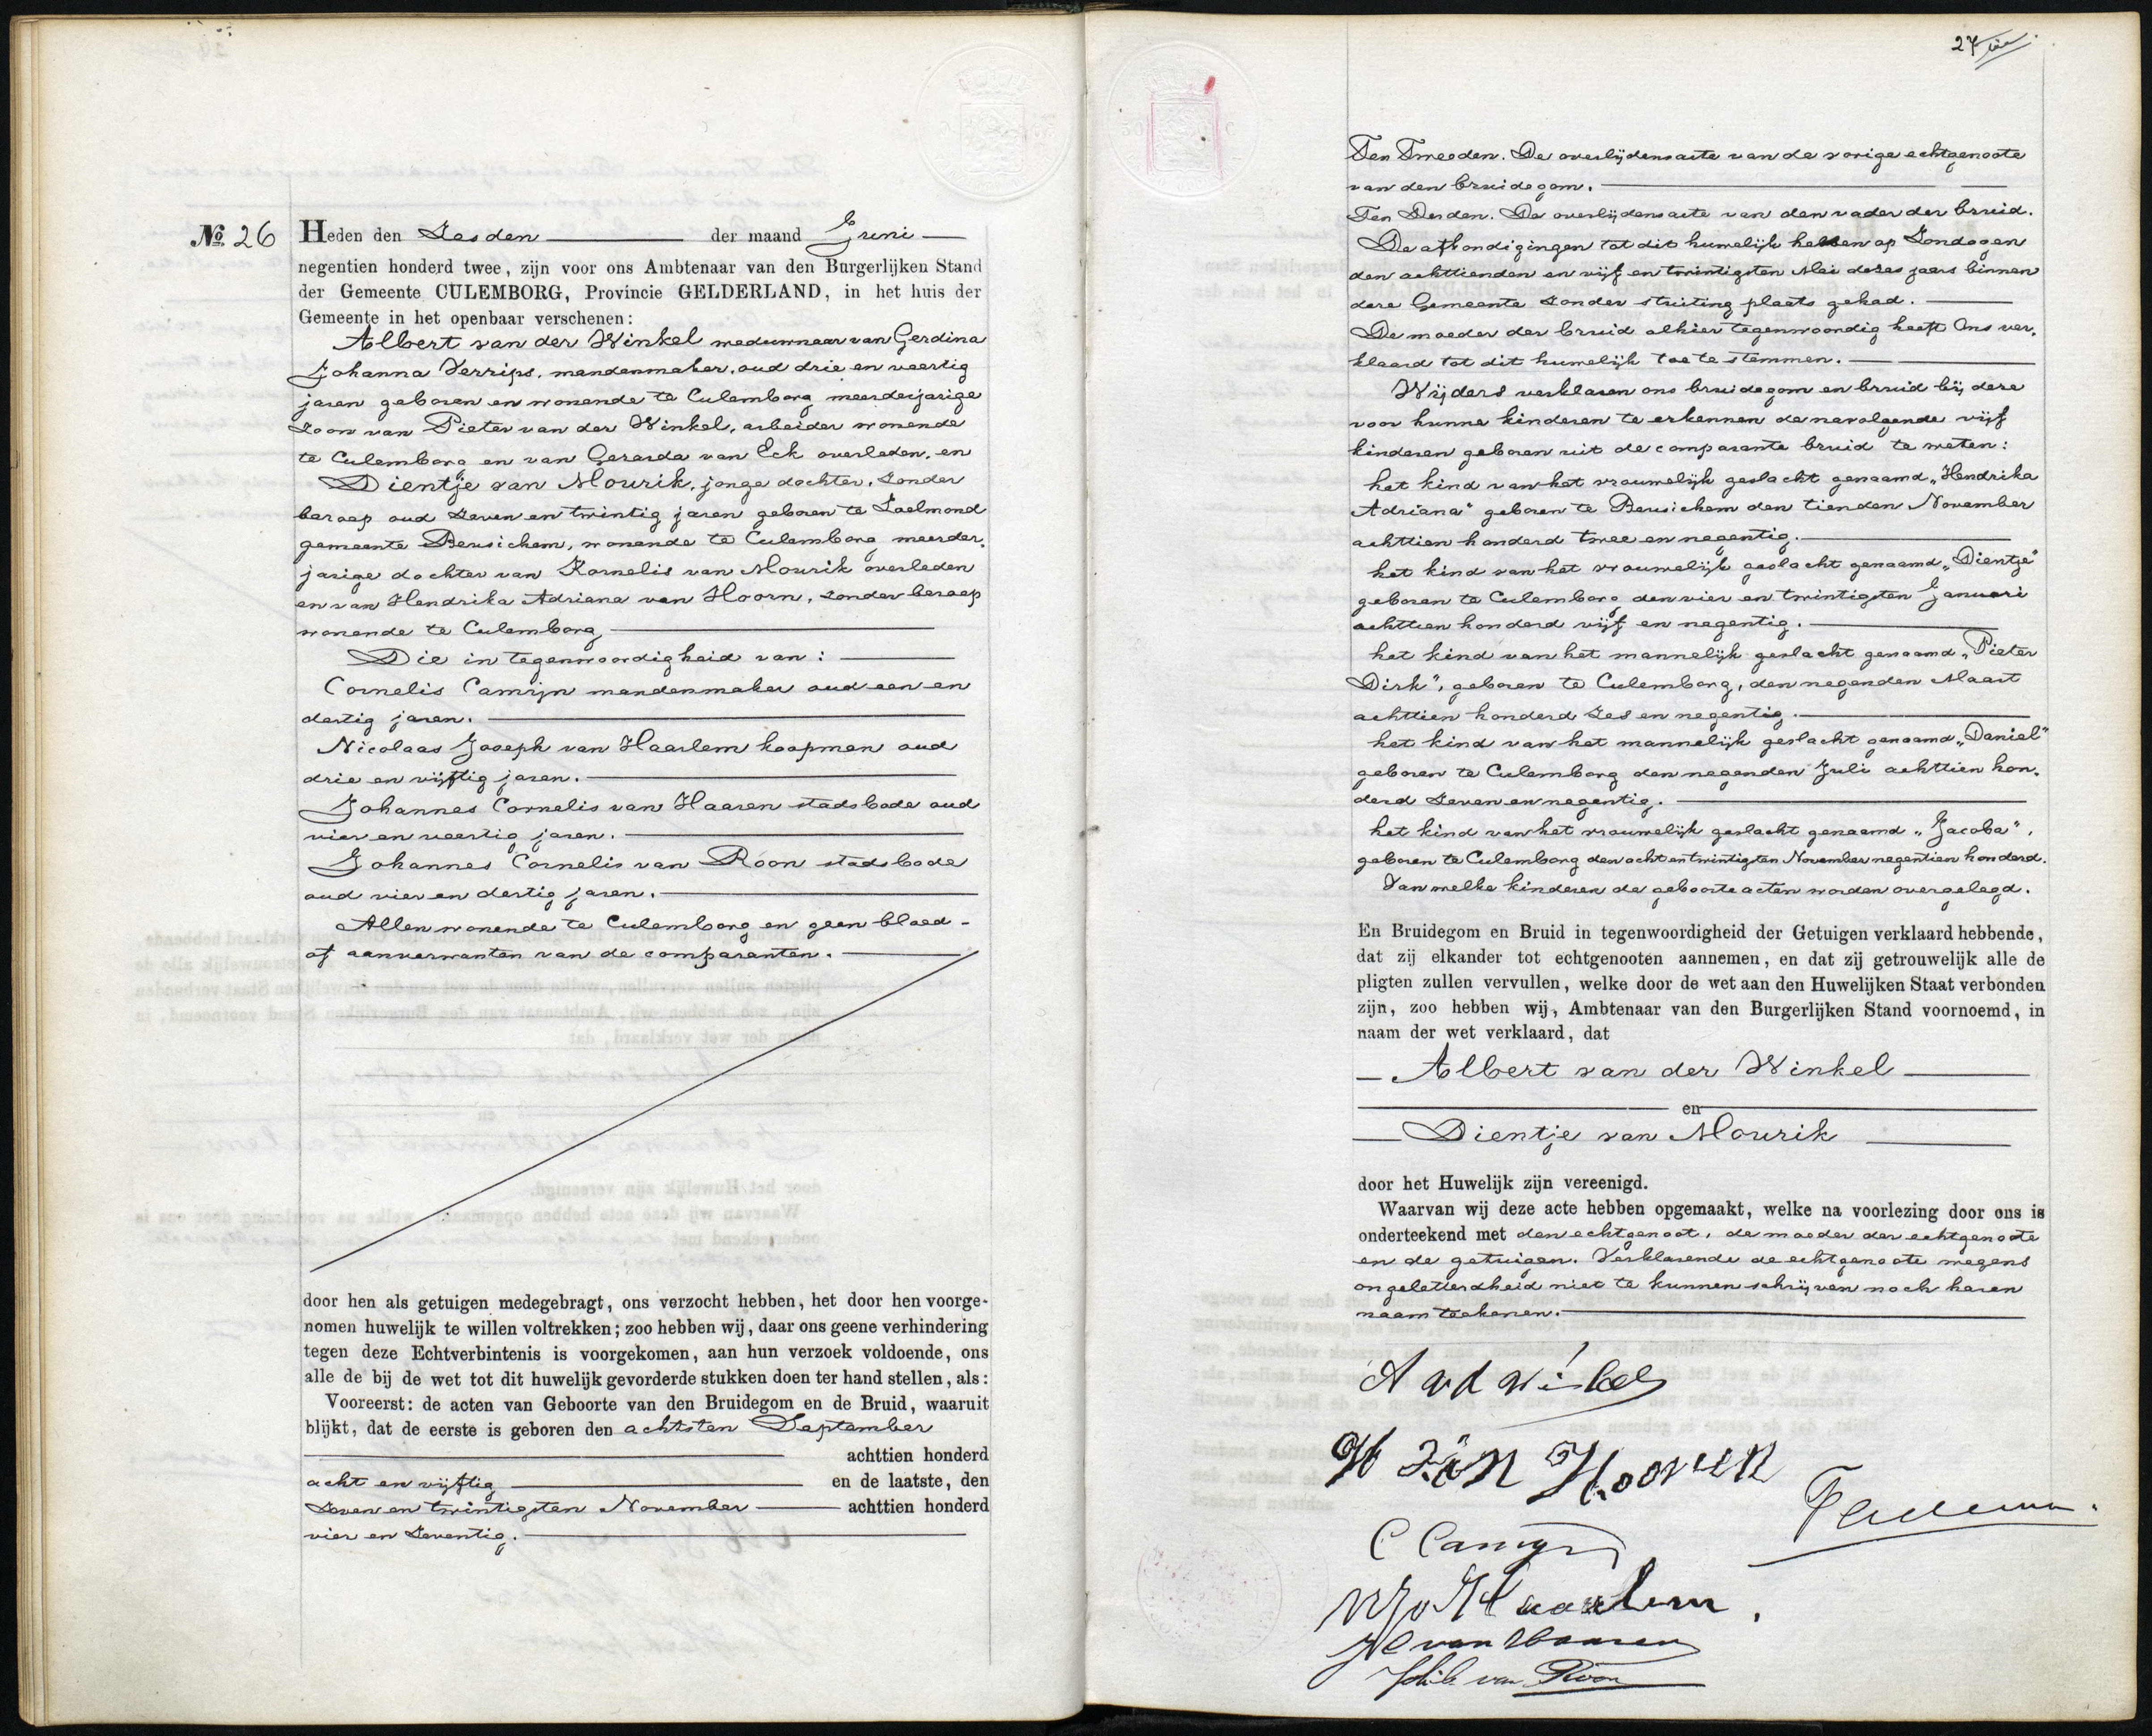 No. 26 Heden den Zesden der maand Juni
negentien honderd twee, zijn voor ons Ambtenaar van den Burgerlijken Stand
der Gemeente CULEMBORG, Provincie GELDERLAND, in het huis der
Gemeente in het openbaar verschenen:
Albert van der Winkel weduwnaar van Gerdina
Johanna Verrips, mandenmaker, oud drie en veertig
jaren geboren en wonende te Culemborg meerderjarige
Zoon van Pieter van der Winkel, arbeider wonende
te Culemborg en van Gerarda van Eck overleden, en
Dientje van Mourik, jonge dochter, Zonder
beroep oud Zeven en twintig jaren geboren te Zoelmond
gemeente Beusichem, wonende te Culemborg meerder-
jarige dochter van Kornelis van Mourik overleden
en van Hendrika Adriana van Hoorn, zonder beroep
wonende te Culemborg
Die in tegenwoordigheid van:
Cornelis Camijn mandenmaker oud een en
dertig jaren.
Nicolaas Joseph van Haarlem koopman oud
drie en vijftig jaren.
Johannes Cornelis van Haaren stadsbode oud
vier en veertig jaren.
Johannes Cornelis van Roon stadsbode
oud vier en dertig jaren.
Allen wonende te Culemborg en geen bloed-
of aanverwanten van de comparanten.
door hen als getuigen medegebragt, ons verzocht hebben, het door hen voorge-
nomen huwelijk te willen voltrekken; zoo hebben wij, daar ons geene verhindering
tegen deze Echtverbintenis is voorgekomen, aan hun verzoek voldoende, ons
alle de bij de wet tot dit huwelijk gevorderde stukken doen ter hand stellen, als:
Vooreerst: de acten van Geboorte van den Bruidegom en de Bruid, waaruit
blijkt, dat de eerste is geboren den achtsten September
achttien honderd
acht en vijftig en de laatste, den
Zeven en twintigsten November achttien honderd
vier en Zeventig.
27
Ten Tweeden. De overlijdensacte van de vorige echtgenoote
van den bruidegom.
Ten Derden. De overlijdensacte van den vader der bruid.
De afkondigingen tot dit huwelijk hebben op Zondagen
den achttienden en vijf en twintigsten Mei dezes jaars binnen
deze Gemeente zonder stuiting plaats gehad.
De moeder der bruid alhier tegenwoordig heeft Ons ver-
klaard tot dit huwelijk toe te stemmen.
Wijders verklaren ons bruidegom en bruid bij deze
voor hunne kinderen te erkennen de navolgende vijf
kinderen geboren uit de comparante bruid te weten:
het kind van het vrouwelijk geslacht genaamd „Hendrika
Adriana" geboren te Beusichem den tienden November
achttien honderd twee en negentig.
het kind van het vrouwelijk geslacht genaamd „Dientje"
geboren te Culemborg den vier en twintigsten Januari
achttien honderd vijf en negentig.
het kind van het mannelijk geslacht genaamd „Pieter
Dirk", geboren te Culemborg, den negenden Maart
achttien honderd Zes en negentig.
het kind van het mannelijk geslacht genaamd „Daniel"
geboren te Culemborg den negenden Juli achttien hon-
derd Zeven en negentig.
het kind van het vrouwelijk geslacht genaamd „Jacoba",
geboren te Culemborg den acht en twintigsten November negentien honderd.
Van welke kinderen de geboorteacten worden overgelegd.
En Bruidegom en Bruid in tegenwoordigheid der Getuigen verklaard hebbende,
dat zij elkander tot echtgenooten aannemen, en dat zij getrouwelijk alle de
pligten zullen vervullen, welke door de wet aan den Huwelijken Staat verbonden
zijn, zoo hebben wij, Ambtenaar van den Burgerlijken Stand voornoemd, in
naam der wet verklaard, dat
Albert van der Winkel
en
Dientje van Mourik
door het Huwelijk zijn vereenigd.
Waarvan wij deze acte hebben opgemaakt, welke na voorlezing door ons is
onderteekend met den echtgenoot, de moeder der echtgenoote
en de getuigen. Verklarende de echtgenoote wegens
ongeletterdheid niet te kunnen schrijven noch haren
naam teekenen.
A v d Winkel
H van Hooren
C Camijn
NJ v Haarlem.
JC van Haaren
van Roon